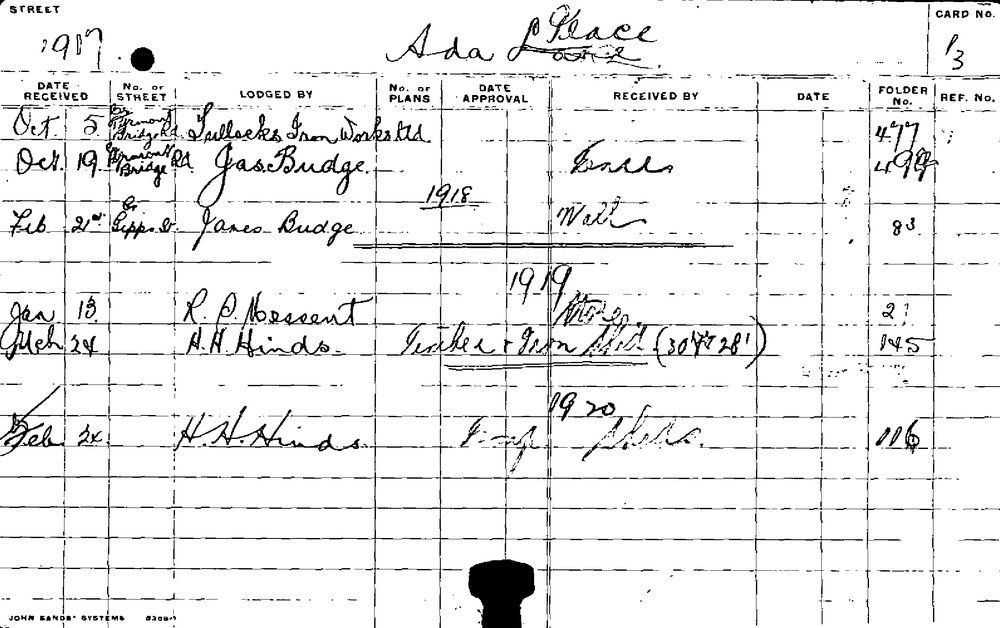 STREET
CARD No.
1917. Ada Place
1/3
DATE RECEIVED No. OF STREET LODGED BY No. OF PLANS DATE APPROVAL RECEIVED BY DATE FOLDER No. REF. No.
Oct. 5 Pyrmont Bridge Rd. Tullochs Iron Works Ltd. 477
Oct. 19 Pyrmont Bridge Rd Jas. Budge.
1918
Feb 21st Gipps St James Budge Wall 83
1919
Jan 13 R. P. Messent Store 21
Mch 24 H. H. Hinds. Timber & Iron Shed (30' x 28') 145
1920
Feb 24 H. H. Hinds. Temp Sheds. 116
JOHN SANDS' SYSTEMS